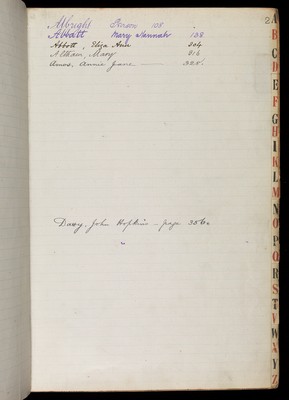 2
Albright 108
Abbott Mary Hannah 138
Abbott, Eliza Ann 204
Altham, Mary 216
Amos, Annie Jane 325.
Davy, John Hopkins - page 356.
A
B
C
D
E
F
G
H
I
K
L
M
N
O
P
Q
R
S
T
V
W
X
Y
Z